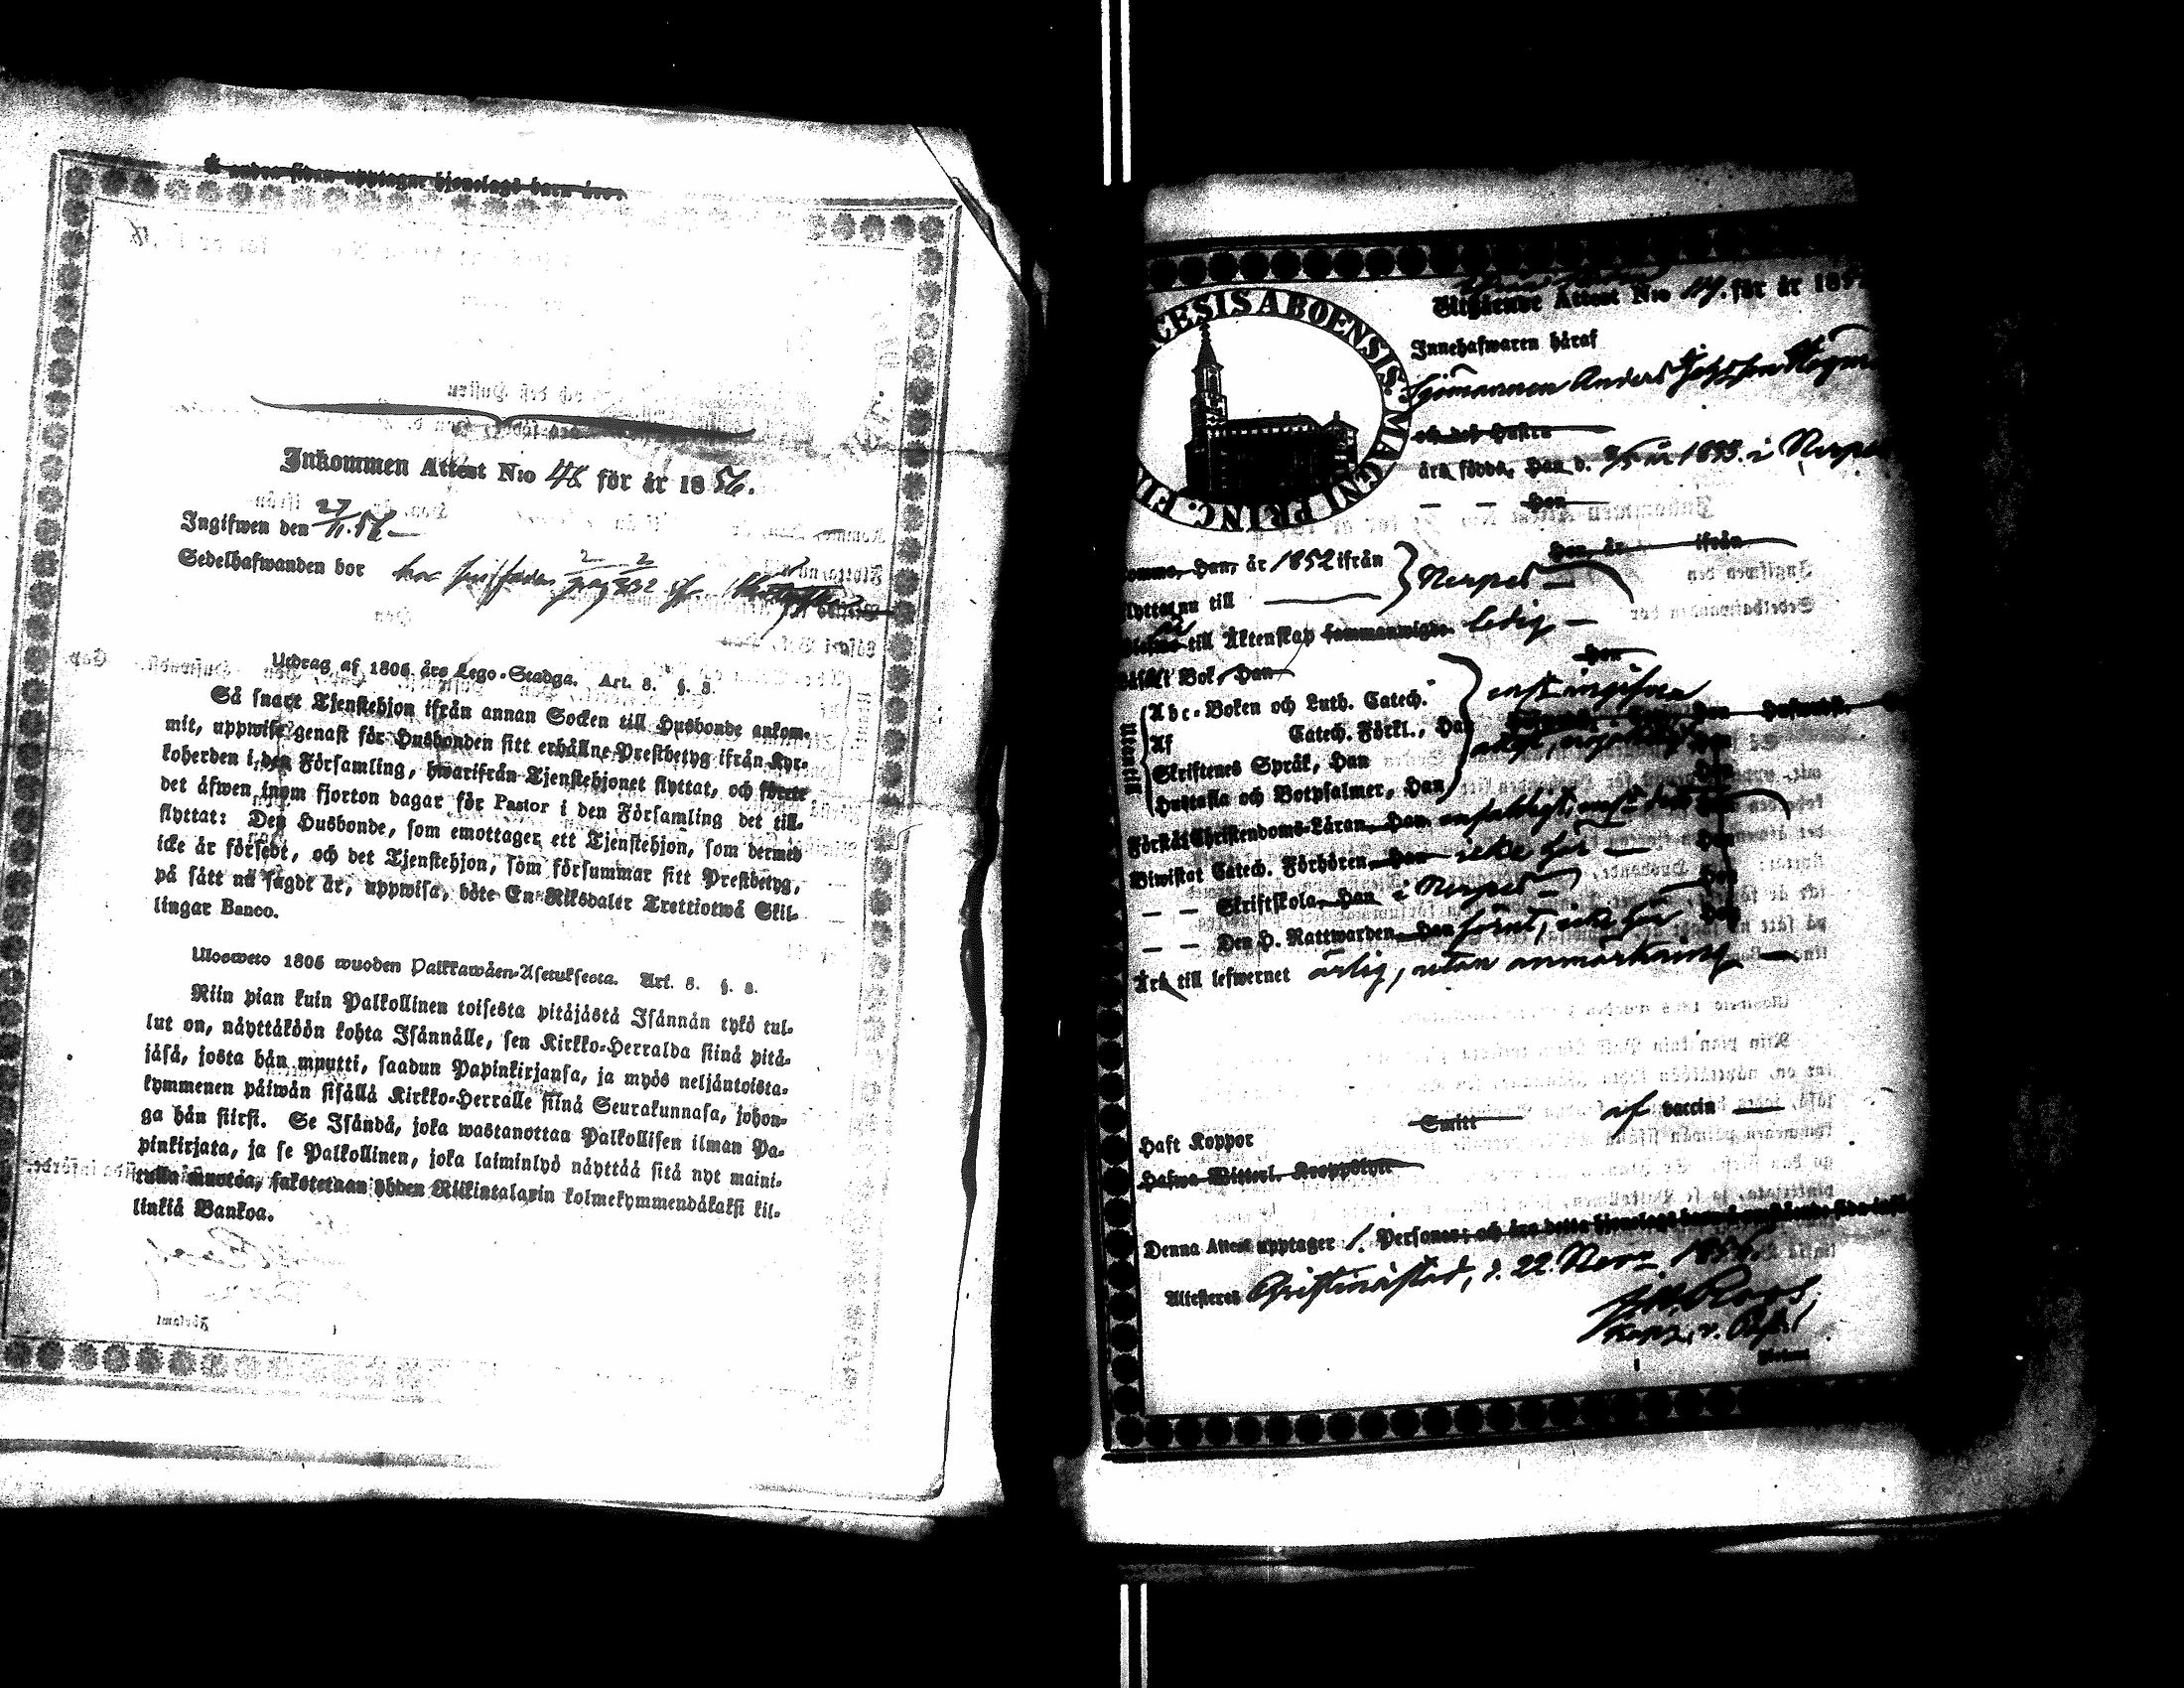 å andra sidan upptagne hjonelags barn äro.
Inkommen Attest N:o 46 för år 1856.
Ingifwen den 27/11.56
Sedelhafwanden bor hos
Utdrag af 1805 års Lego-Stadga. Art. 8. §. 8.
Så snart Tjenstehjon ifrån annan Socken till Husbonde ankom-
mit, uppwise genast för Husbonden sitt erhållne Prestbetyg ifrån Kyr-
koherden i den Församling, hwarifrån Tjenstehjonet flyttat, och förete
det äfwen inom fjorton dagar för Pastor i den Församling det till-
flyttat: Den Husbonde, som emottager ett Tjenstehjon, som dermed
icke är försedt, och det Tjenstehjon, som försummar sitt Prestbetyg,
på sätt nu sagdt är, uppwisa, böte En Riksdaler Trettiotwå Skil-
lingar Banco.
Ulosweto 1805 wuoden Palkkawäen-Asetuksesta. Art. 8. §. 8.
Niin pian kuin Palkollinen toisesta pitäjästä Isännän tykö tul-
lut on, näyttäköön kohta Isännälle, sen Kirkko-Herralda siinä pitä-
jäsä, josta hän muutti, saadun Papinkirjansa, ja myös neljäntoista-
kymmenen päiwän sisällä Kirkko-Herralle siinä Seurakunnasa, johon-
ga hän siirsi. Se Isändä, joka wastanottaa Palkollisen ilman Pa-
pinkirjata, ja se Palkollinen, joka laiminlyö näyttää sitä nyt maini-
tulla muotoa, sakotetaan yhden Riikintalarin kolmekymmendäkaksi kil-
linkiä Bankoa.
CESIS ABOENSIS. MAGNI PRINC. FIN
Utgående Attest N:o för år 185
Innehafwaren häraf
Sjömannen Anders Johansson
och deß Hustru
äro födde, Han d. i Nerpes
— — Hon
Komne, Han, år 1852 ifrån Nerpes — Hon, år ifrån
Flyttat nu till
är till Äktenskap sammanwigde. ledig —
i Bok, Han Hon
Utantill
Abc-Boken och Luth. Catech.
Af Catech. Förkl., Han
Skriftenes Språk, Han
Hustafla och Botpsalmer, Han
Förstår Christendoms-Läran, Han
Biwistat Catech. Förhören, Han icke här —
— — Skriftskola, Han i Nerpes —
— — Den H. Nattwarden, Han förut, icke här
Är till lefwernet ärlig, utan anmärkning —
Haft Koppor Smitt af vaccin —
Hafwa Witterl. Kroppslyte
Denna Attest upptager 1. Personer; och äro detta hjonelags barn å omstående sida
Attesteras Christinæstad, d. 22 Nov. 1856.